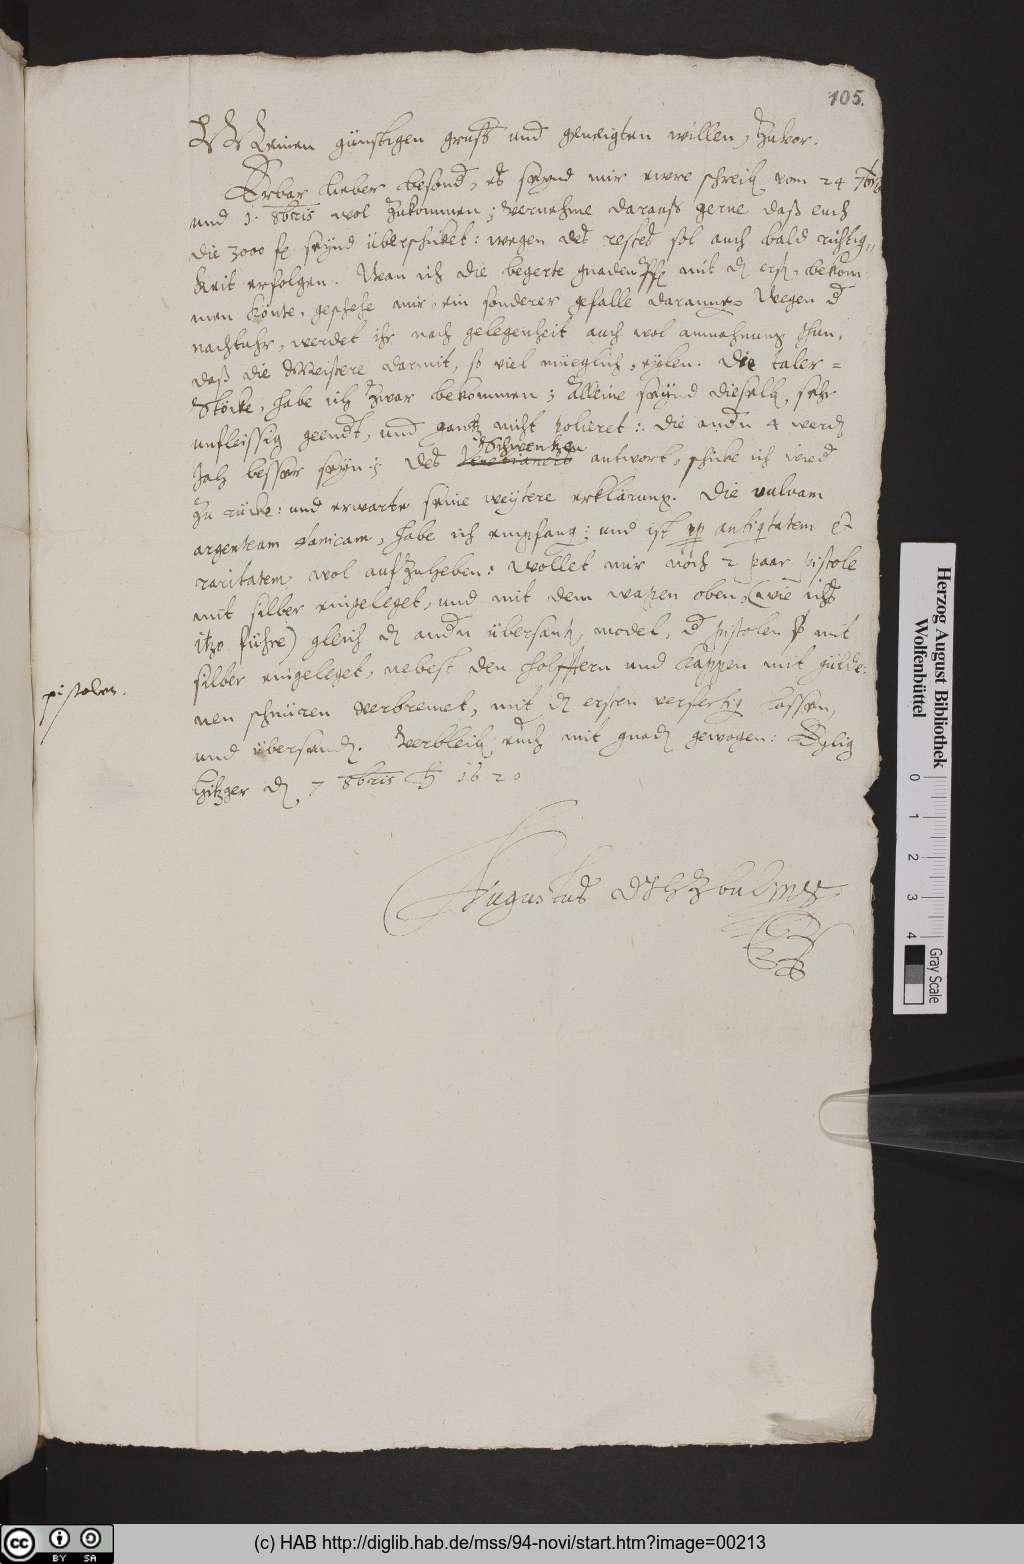 105.
Meinen günstigen gruß und geneigten willen, zuvor.
Erbar lieber besond, es seynd mir ewre schreib vom 24 7bris
und 1. 8bris wol zukommen; vernehme darauß gerne daß euch
die 3000 fl seynd überschicket: wegen des restes sol auch bald richtig„
keit erfolgen. Wan ich die begerte gnaden mit d erst, bekom
men könte, geschehe mir, ein sonderer gefalle daranne. Wegen d
nachtuhr, werdet ihr nach gelegenheit auch wol anmahnung thun,
daß die Meistere darmit, so viel müeglich, eylen. Die taler =
Stöcke, habe ich zwar bekommen; alleine seynd dieselb, sehr
unfleissig geendt, und gantz nicht polieret: die andn 4 werd
besser seyn: des Schwentzen antwort, schicke ich wied
zu rücke: und erwarte seine weytere erklärung. Die vulvam
argenteam, habe ich empfang; und ist pp antiqtatem et
raritatem wol auf zuheben: Wollet mir noch 2 paar pistole
mit silber eingeleget, und mit dem wapen oben, (wie ichs
itzo führe) gleich d andn übersant, model, d pistolen so mit
silber eingeleget, nebest den holfftern und kappen mit gülde:
pistolen.
nen schnüren verbremet, mit d ersten verfertig lassen,
und übersend. Verbleib euch mit gnad gewogen: Eylig
Hitzger d 7 8bris A 1620
Augustus
Herzog August Bibliothek
Wolfenbüttel
0 1 2 3 4
Gray Scale
(c) HAB http://diglib.hab.de/mss/94-novi/start.htm?image=00213
cc BY SA